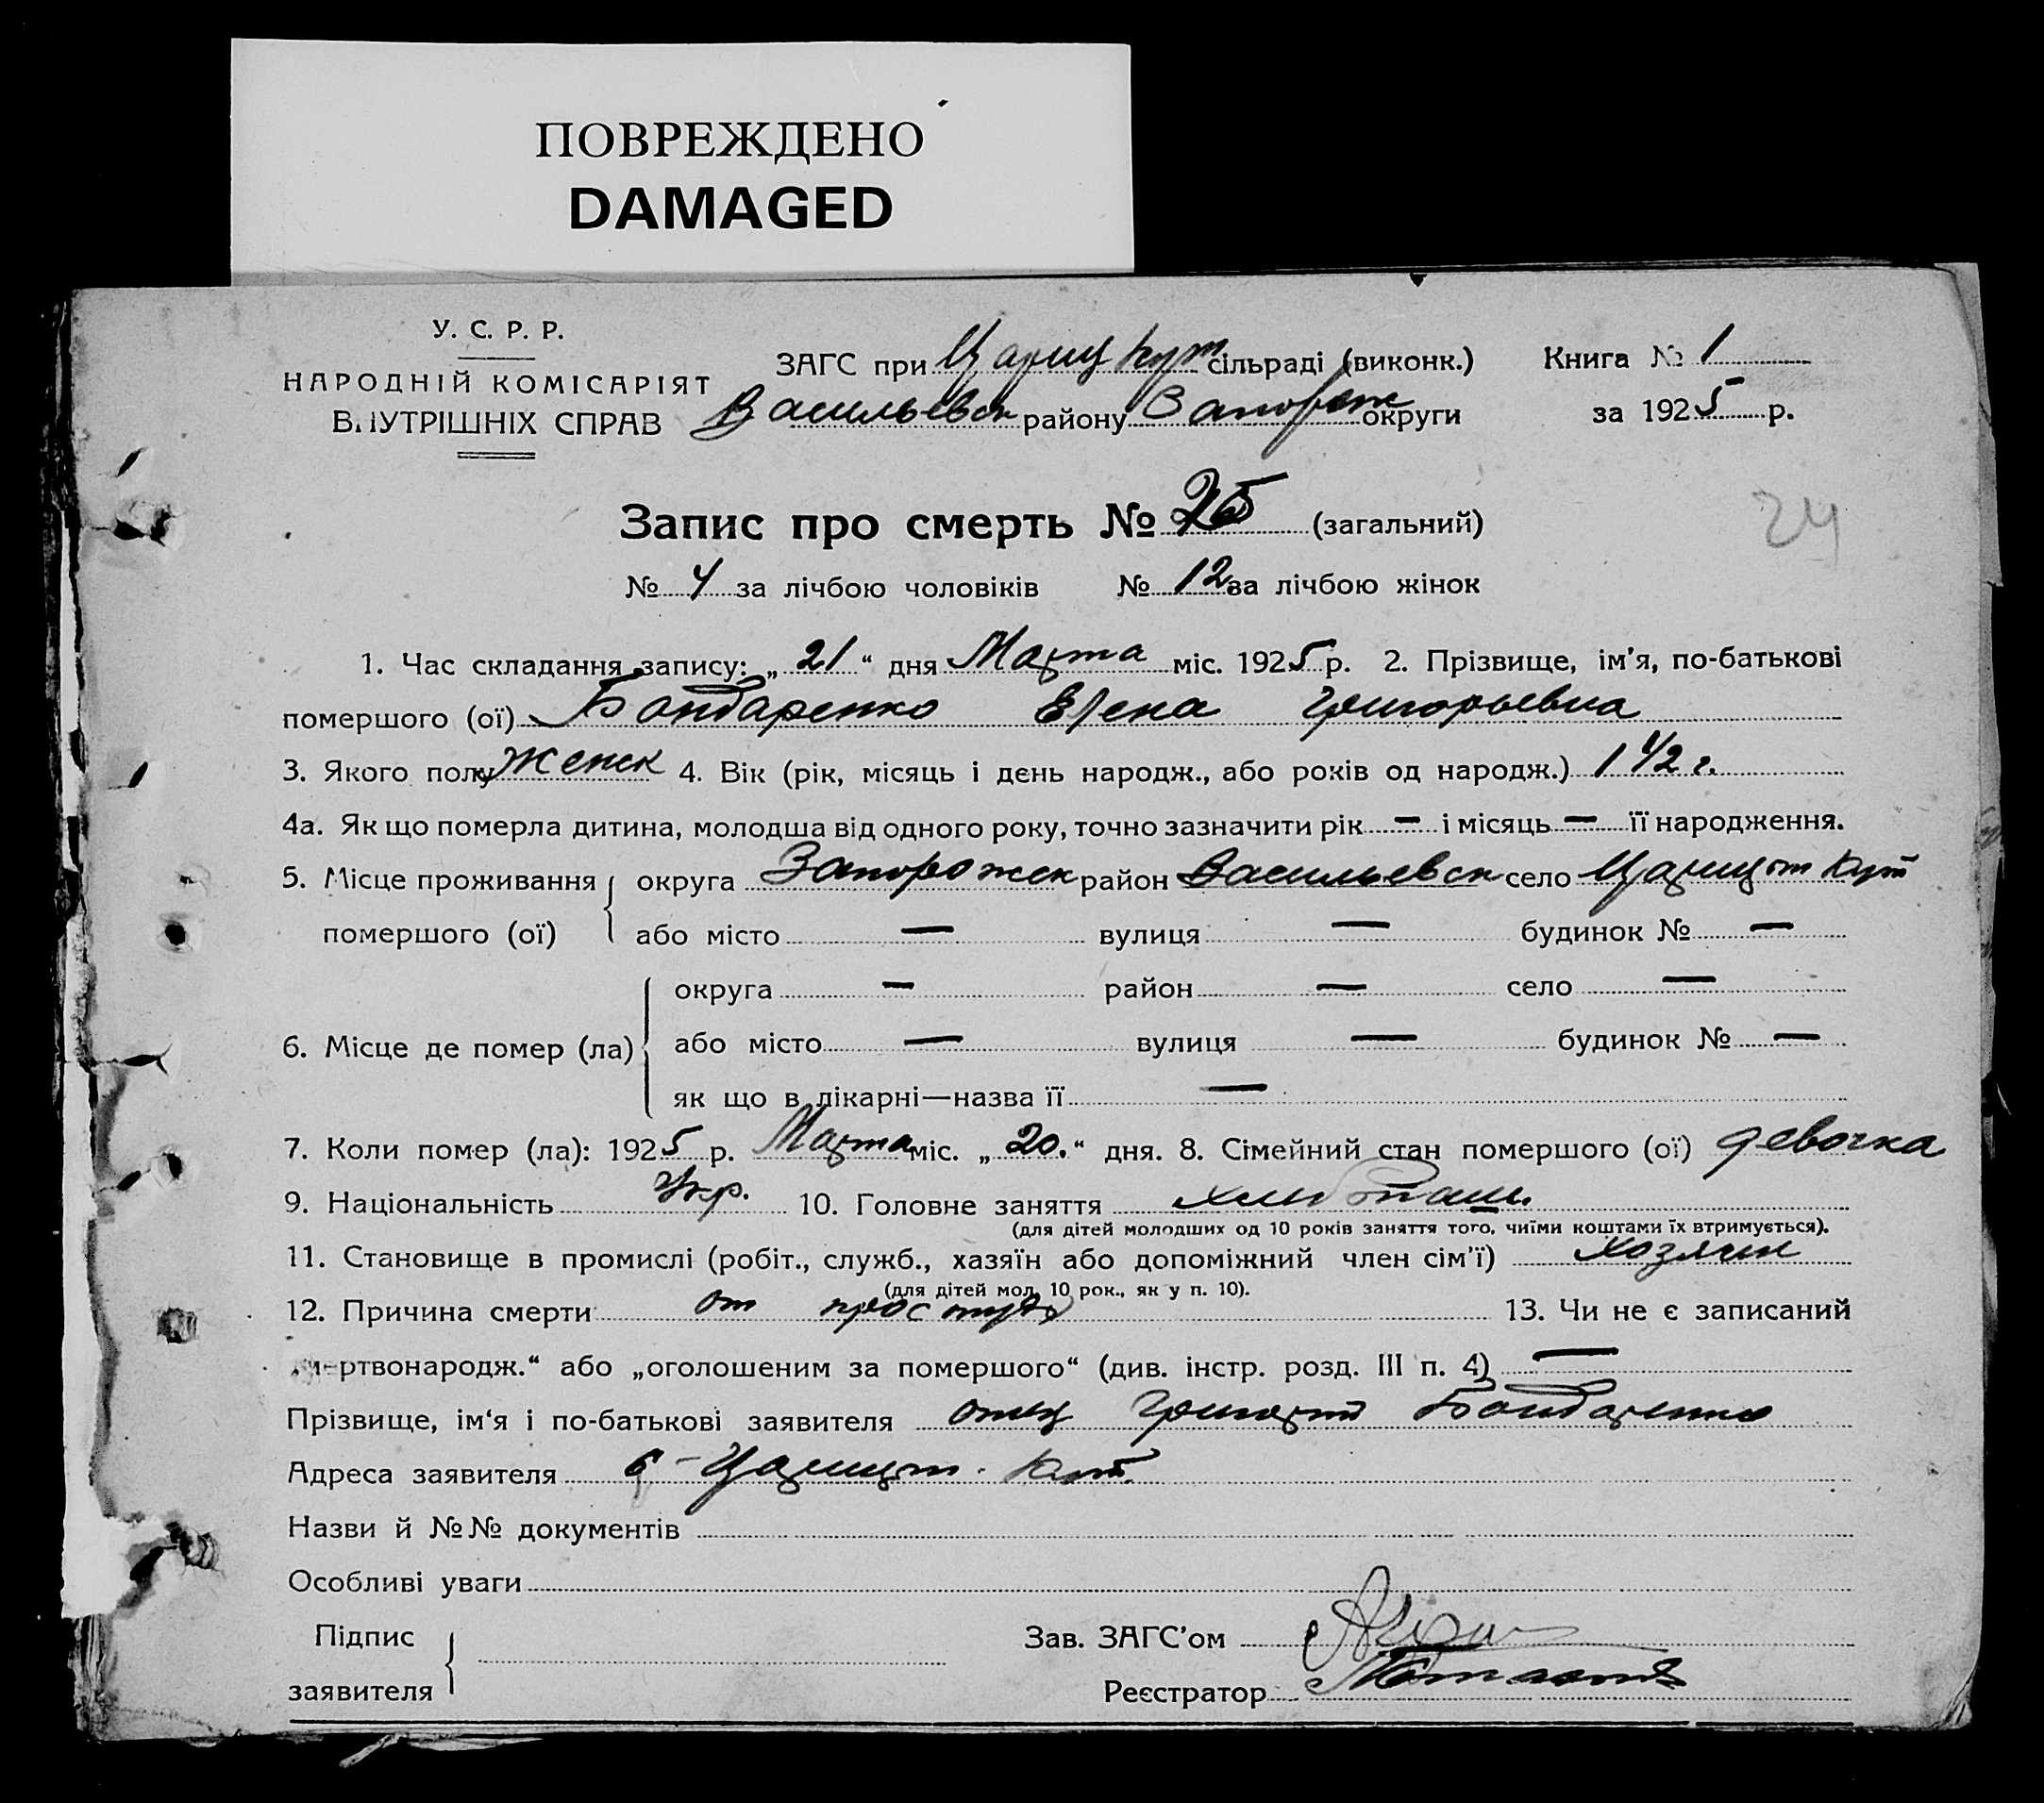 ПОВРЕЖДЕНО
DAMAGED
У. С. Р. Р.
НАРОДНІЙ КОМІСАРІЯТ
ВНУТРІШНІХ СПРАВ
ЗАГС при Цариц Кут сільраді (виконк.) Книга № 1
Васильевск району Запорож округи за 1925 р.
Запис про смерть № (загальний)
24
№ 4 за лічбою чоловіків № 12 за лічбою жінок
1. Час складання запису: „21“ дня Марта міс. 1925 р. 2. Прізвище, ім'я, по-батькові
помершого (ої) Бондаренко Елена Григорьевна
3. Якого полу Женск 4. Вік (рік, місяць і день народж., або років од народж.) 1 1/2 г.
4а. Як що померла дитина, молодша від одного року, точно зазначити рік — і місяць — її народження.
5. Місце проживання округа Запорожск район Васильевск село Царицын Кут
помершого (ої) або місто — вулиця — будинок № —
округа — район — село —
6. Місце де помер (ла) або місто — вулиця — будинок № —
як що в лікарні—назва її —
7. Коли помер (ла): 1925 р. Марта міс. „20.“ дня. 8. Сімейний стан помершого (ої) девочка
9. Національність Укр. 10. Головне заняття хлебопаш.
(для дітей молодших од 10 років заняття того, чиїми коштами їх втримується).
11. Становище в промислі (робіт., служб., хазяїн або допоміжний член сім'ї) хозяин
(для дітей мол. 10 рок., як у п. 10).
12. Причина смерти от простуды 13. Чи не є записаний
„мертвонародж.“ або „оголошеним за помершого“ (див. інстр. розд. III п. 4) —
Прізвище, ім'я і по-батькові заявителя отец Григорий Бондаренко
Адреса заявителя с - Царицын. Кут.
Назви й №№ документів
Особливі уваги
Підпис
заявителя
Зав. ЗАГС'ом
Реєстратор